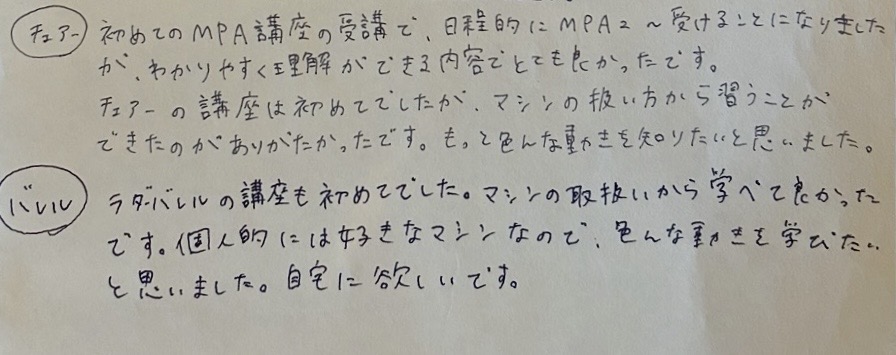 チェアー 初めてのMPA講座の受講で、日程的にMPA2〜受けることになりました
が、わかりやすく理解ができる内容でとても良かったです。
チェアーの講座は初めてでしたが、マシンの扱い方から習うことが
できたのがありがたかったです。もっと色んな動きを知りたいと思いました。
バレル ラダーバレルの講座も初めてでした。マシンの取扱いから学べて良かった
です。個人的には好きなマシンなので、色んな動きを学びたい
と思いました。自宅に欲しいです。